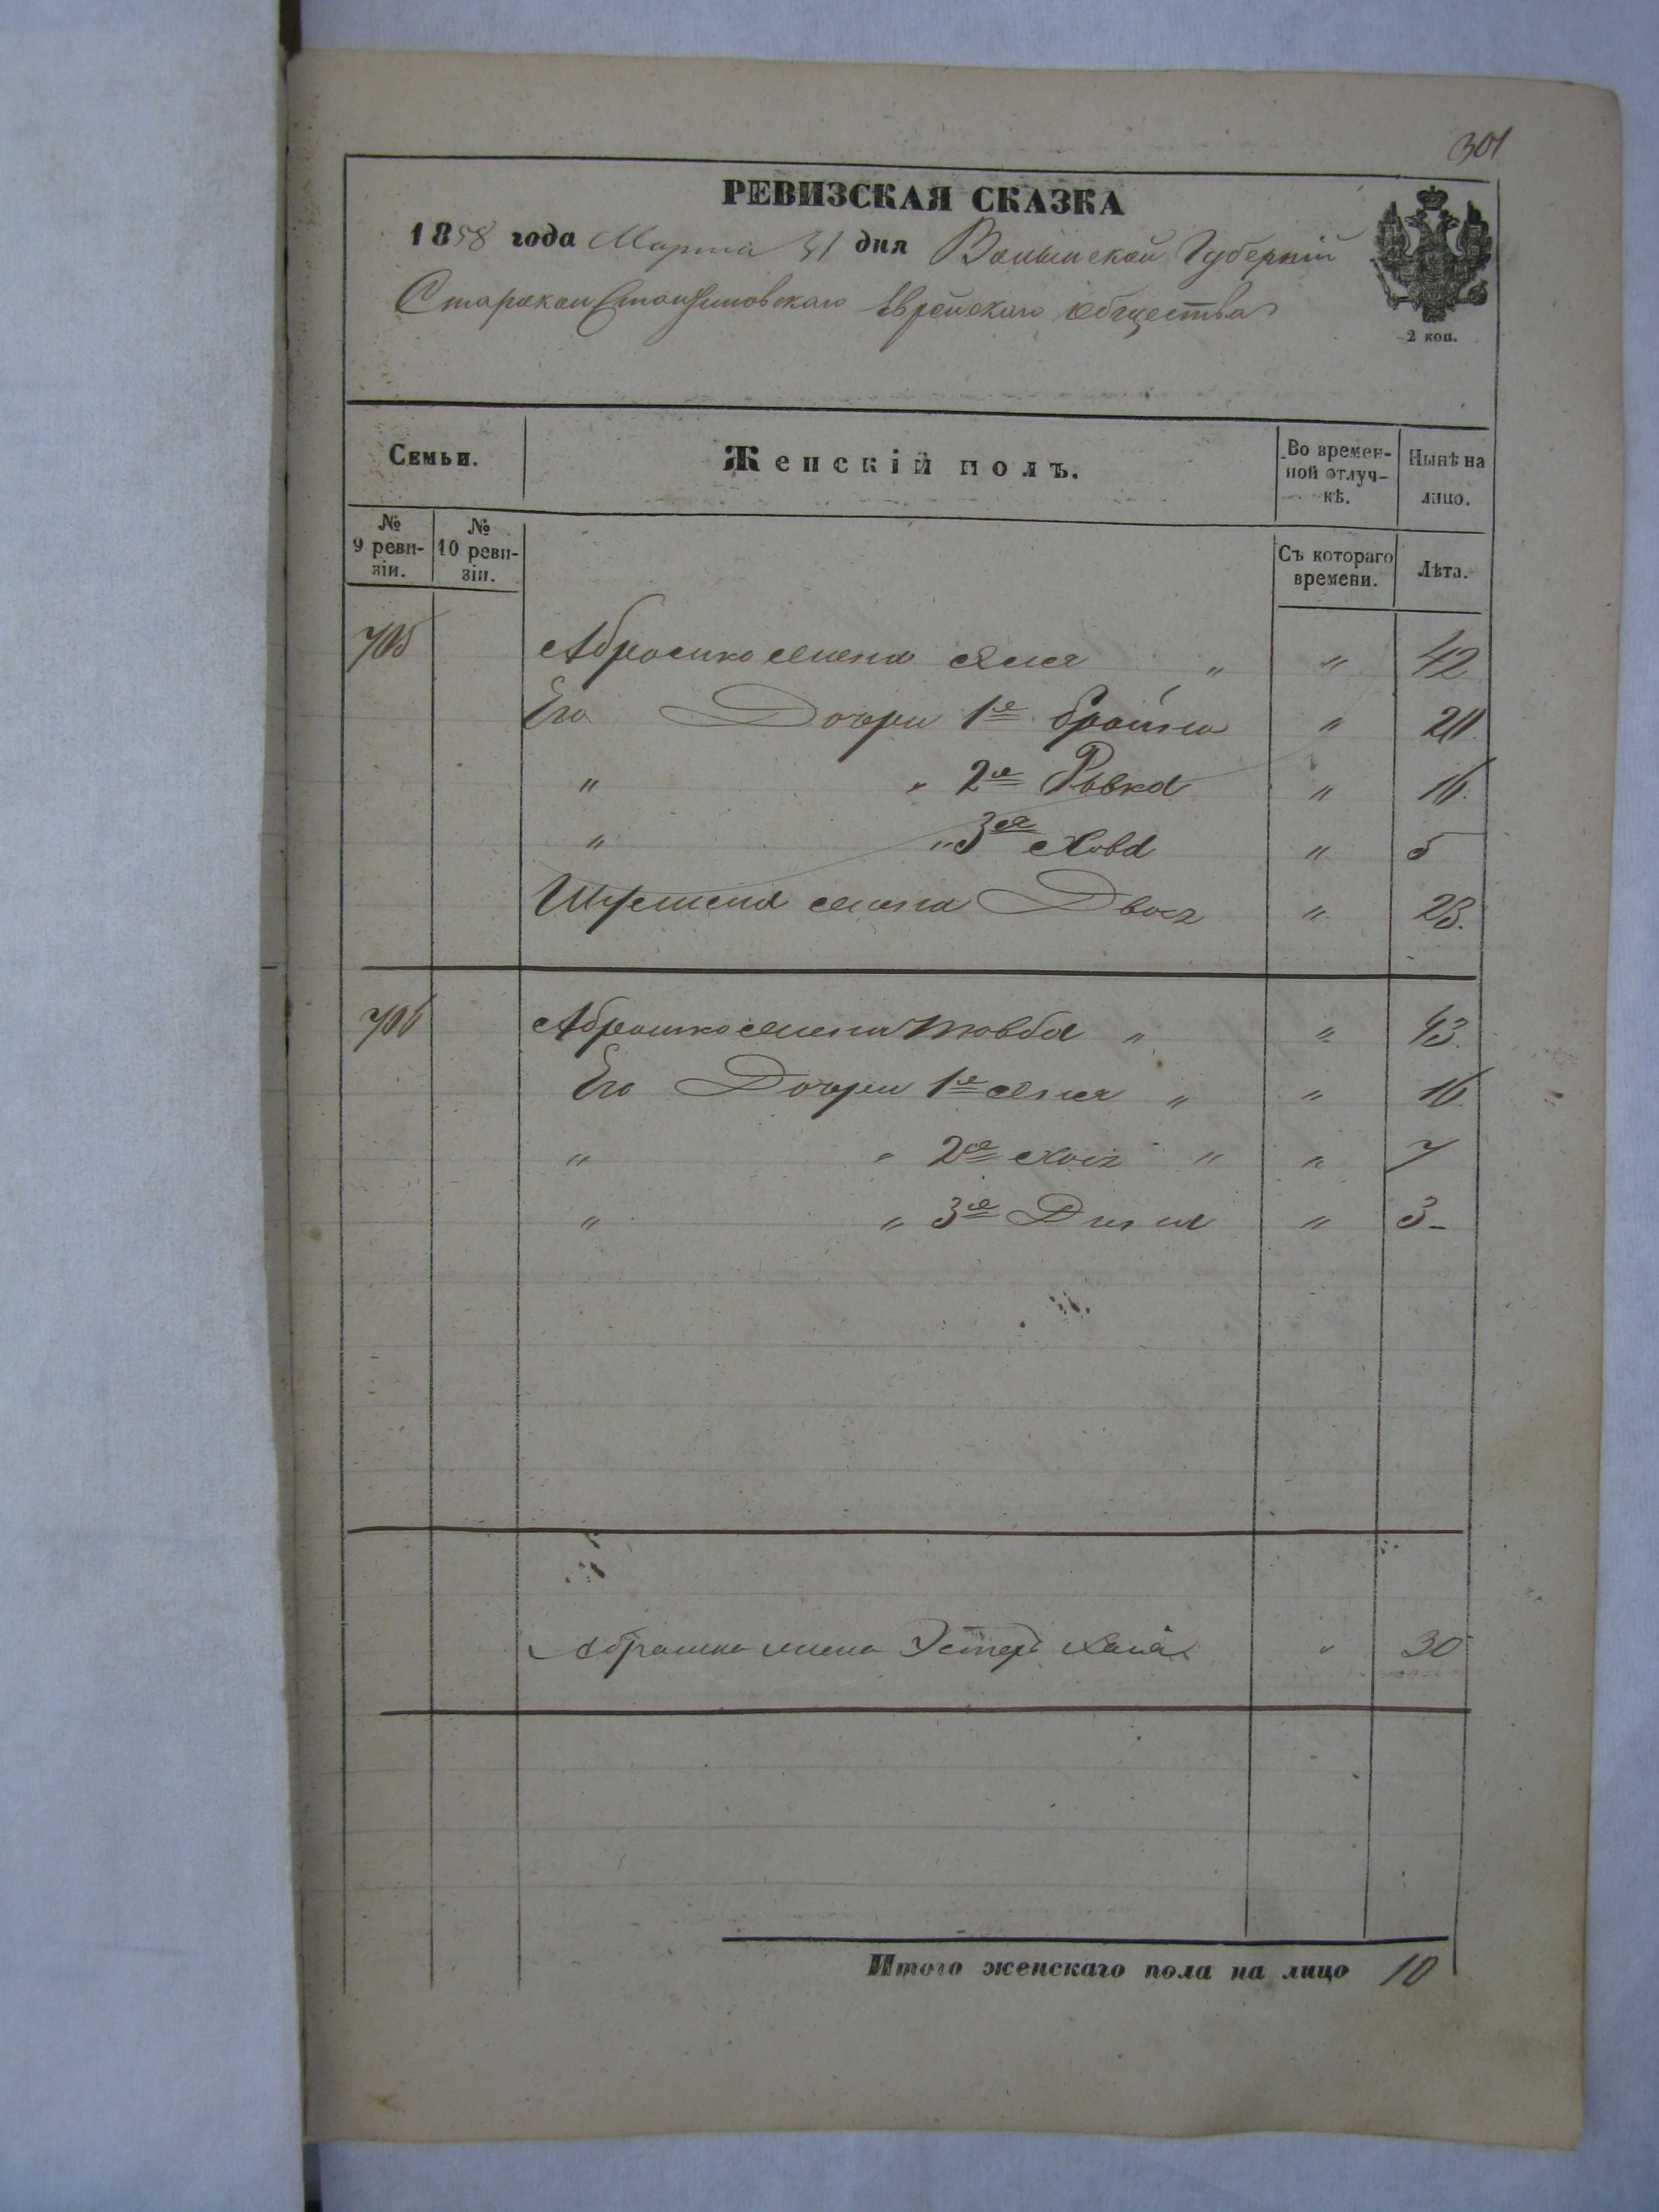 301
РЕВИЗСКАЯ СКАЗКА
1858 года Марта 31 дня Волынской Губерніи
Староконстантиновскаго Еврейскаго Общества
2 коп.
Семьи.
Женскій полъ.
Во времен-
ной отлуч-
кѣ.
Нынѣ на
лицо.
№
9 реви-
зіи.
№
10 реви-
зіи.
Съ котораго
времени.
Лѣта.
705 Абрашко жена " " 42
Его Дочери 1я Брайна " 20.
" " 2я Ривка " 16.
" " 3я Хова " 5
жена Двося " 23.
706 Абрашко жена Товба " " 43.
Его Дочери 1я " " 16.
" " 2я Хая " " 7
" " 3я Дина " 3-
Абрашка жена Эстеръ Хая " 30
Итого женскаго пола на лицо 10